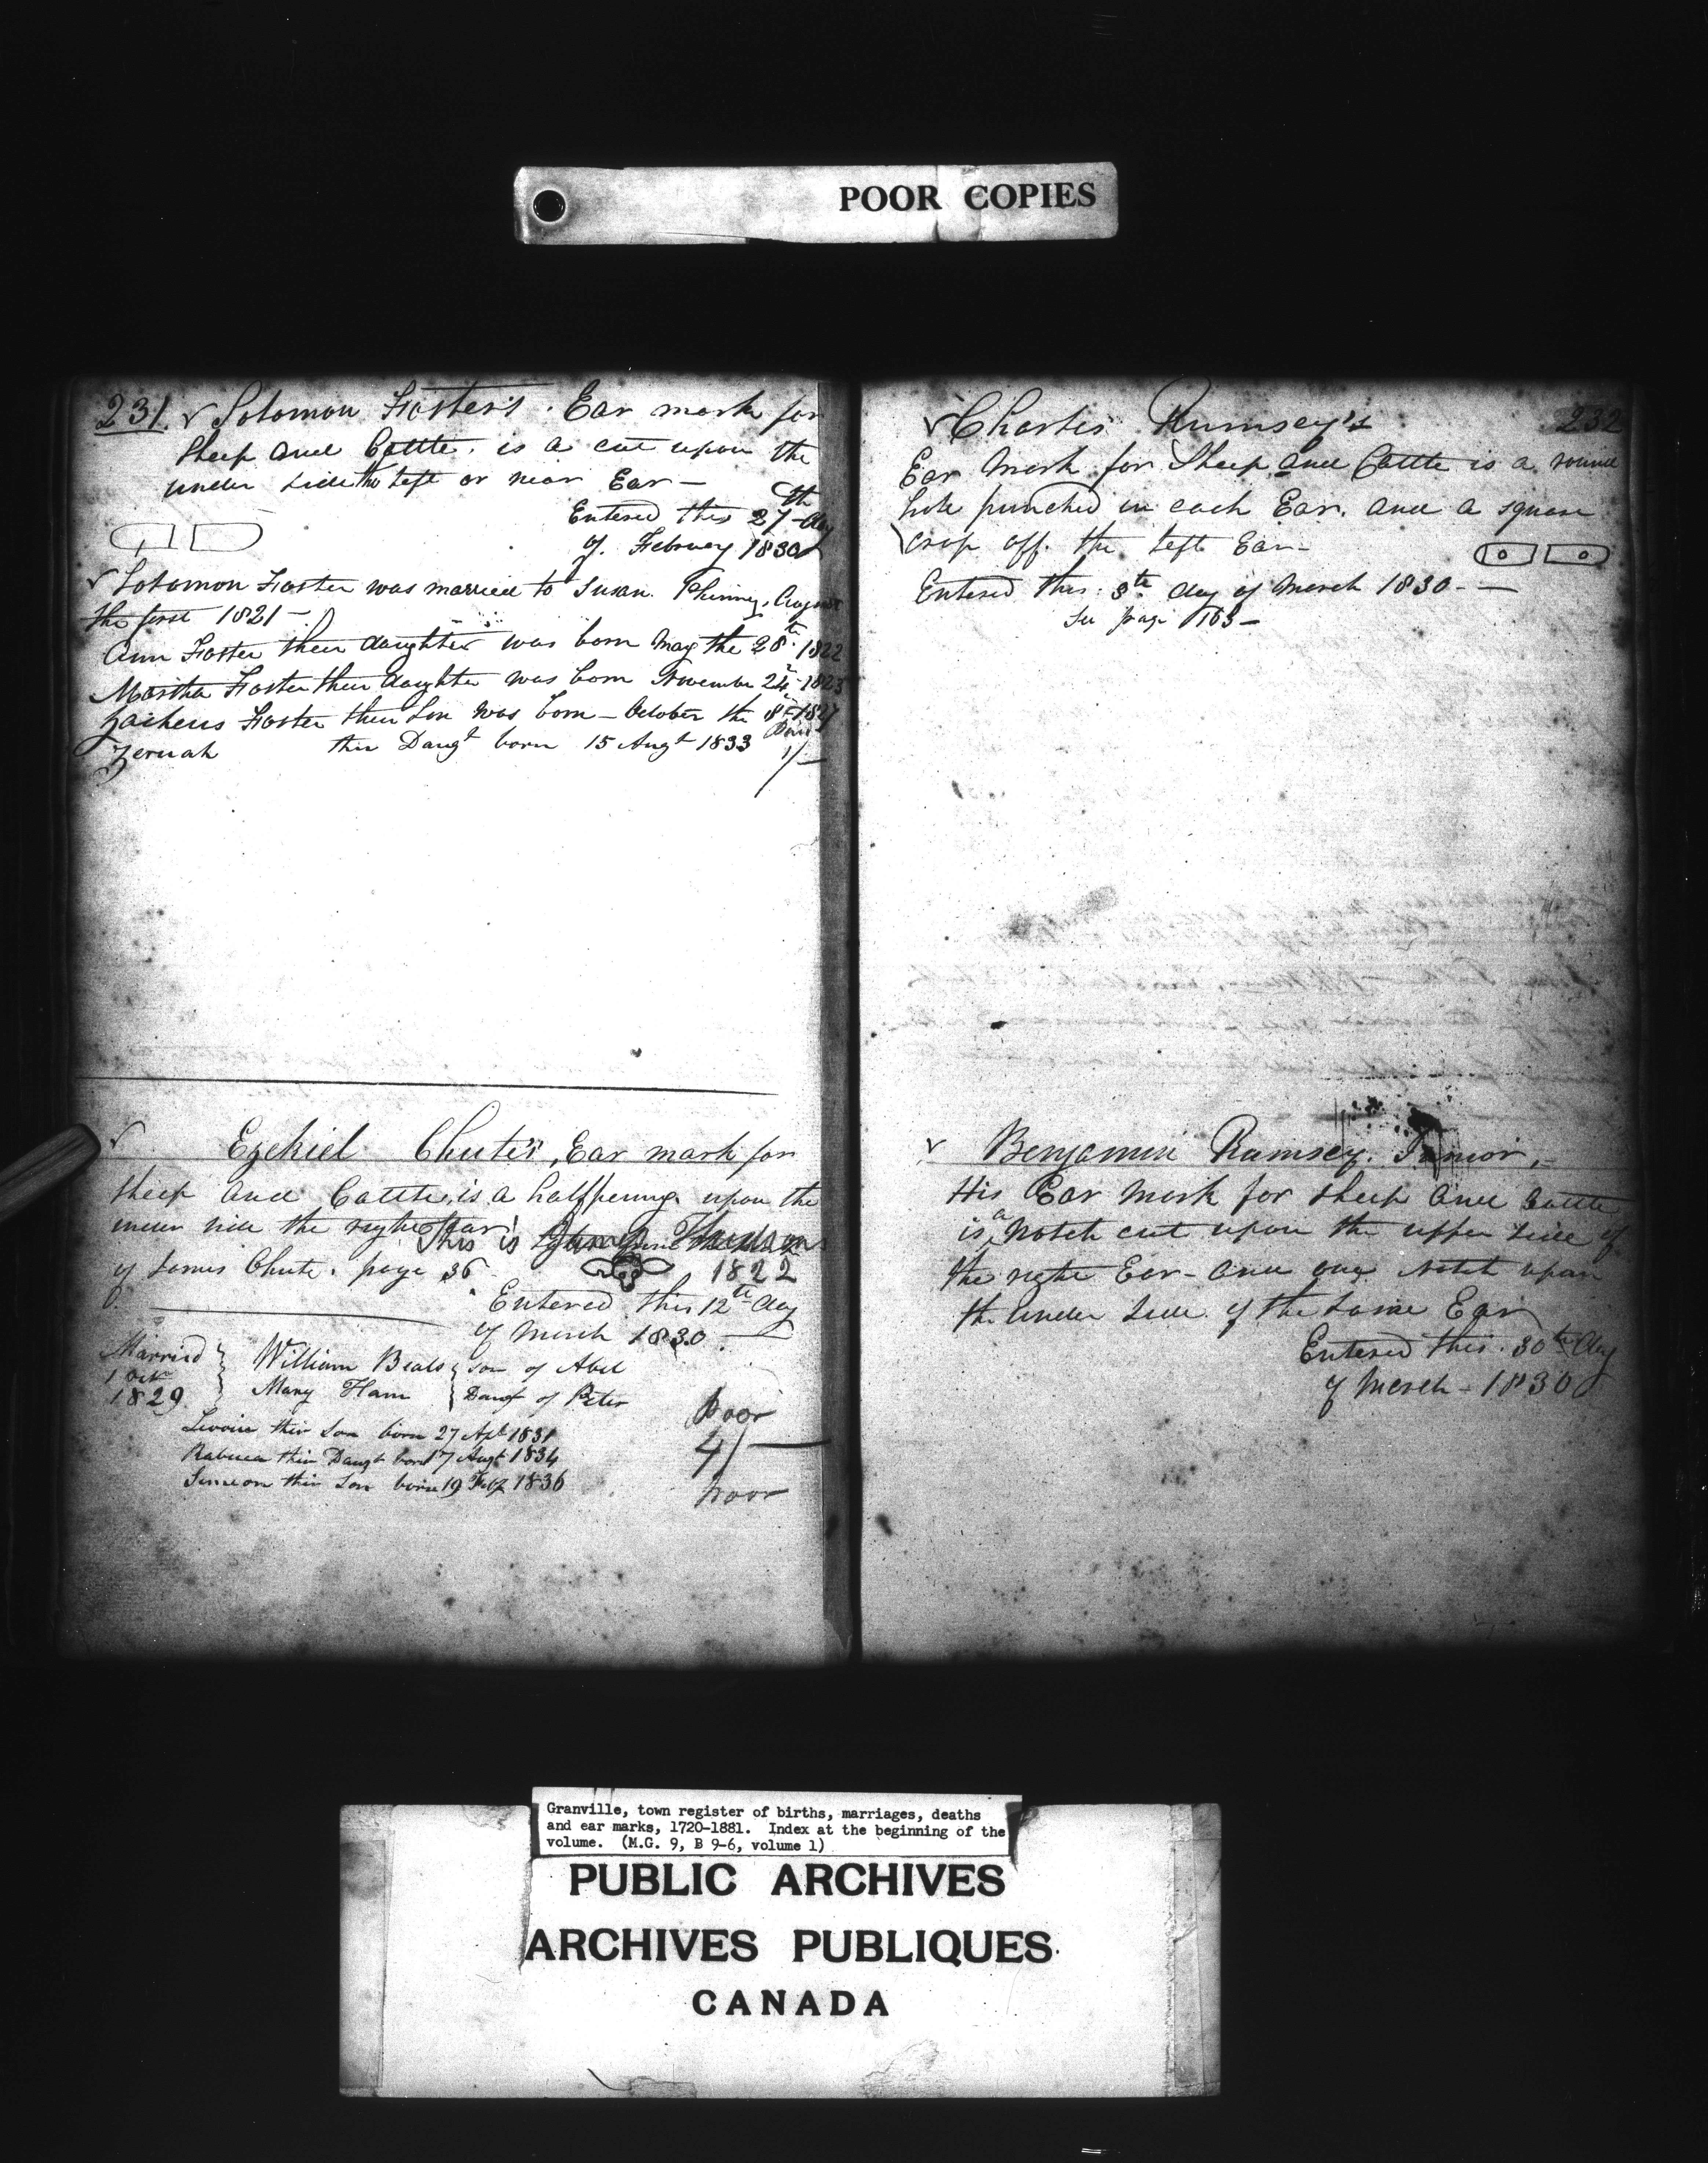 POOR COPIES
231. Solomon Foster's. Ear mark for
Sheep and Cattle. is a cut upon the
under side the left or near Ear —
Entered this 27th day
of. February 1830
Solomon Foster was married to Susan. Phinney, August
the first 1821 —
Ann Foster their daughter was born May the 28th 1822
Martha Foster their daughter was born November 24th 1823
Zacheus Foster their Son was born — October the 8th 1827
Zeruah their Daugt born 15 Augt 1833
Paid
1/—
Ezekiel Chute's, Ear mark for
Sheep and Cattle, is a halfpenny upon the
the right Ear. This is
of James Chute. page 36
1822
Entered this 12th day
of March 1830
Married
1829
William Beals son of Abel
Mary Ham Daugt of Peter
their Son born 27 Apl 1831
their Daugt born 17 Augt 1834
Simeon their Son born 19 1836
Poor
4/—
Poor
232
Charles Rumsey's
Ear Mark for Sheep and Cattle is a round
hole punched in each Ear. and a square
crop off. the left Ear —
Entered this. 8th day of March 1830. —
See page 163 —
Benjamin Rumsey. Junior, —
His Ear Mark for Sheep and Cattle
is a Notch cut upon the upper side of
the right Ear — and one Notch upon
the under side of the same Ear
Entered this. 30th day
of March — 1830
Granville, town register of births, marriages, deaths
and ear marks, 1720-1881. Index at the beginning of the
volume. (M.G. 9, B 9-6, volume 1)
PUBLIC ARCHIVES
ARCHIVES PUBLIQUES
CANADA